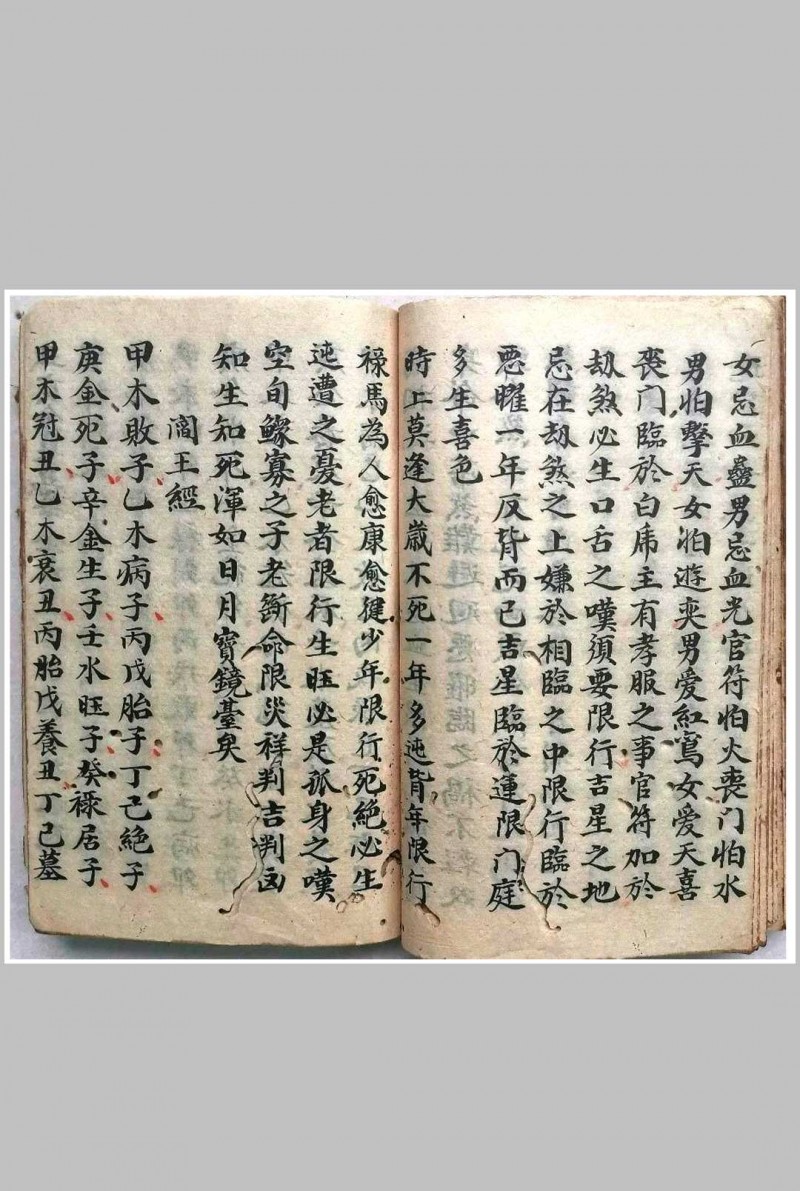 女忌血蠱男忌血光官符怕火喪門怕水
男怕擊天女怕遊奕男愛紅鸞女愛天喜
喪门臨於白虎主有孝服之事官符加於
劫煞必生口舌之嘆須要限行吉星之地
忌在劫煞之上嫌於相臨之中限行臨於
惡曜一年反背而已吉星臨於運限门庭
多生喜色
時上莫逢大歲不死一年多迍背年限行
祿馬為人愈康愈健少年限行死絶必生
迍遭之憂老者限行生旺必是孤身之嘆
空旬鰥寡之子老斷命限災祥判吉判凶
知生知死渾如日月寶鏡臺矣
閻王經
甲木敗子乙木病子丙戊胎子丁己絶子
庚金死子辛金生子壬水旺子癸祿居子
甲木冠丑乙木衰丑丙胎戊養丑丁己墓